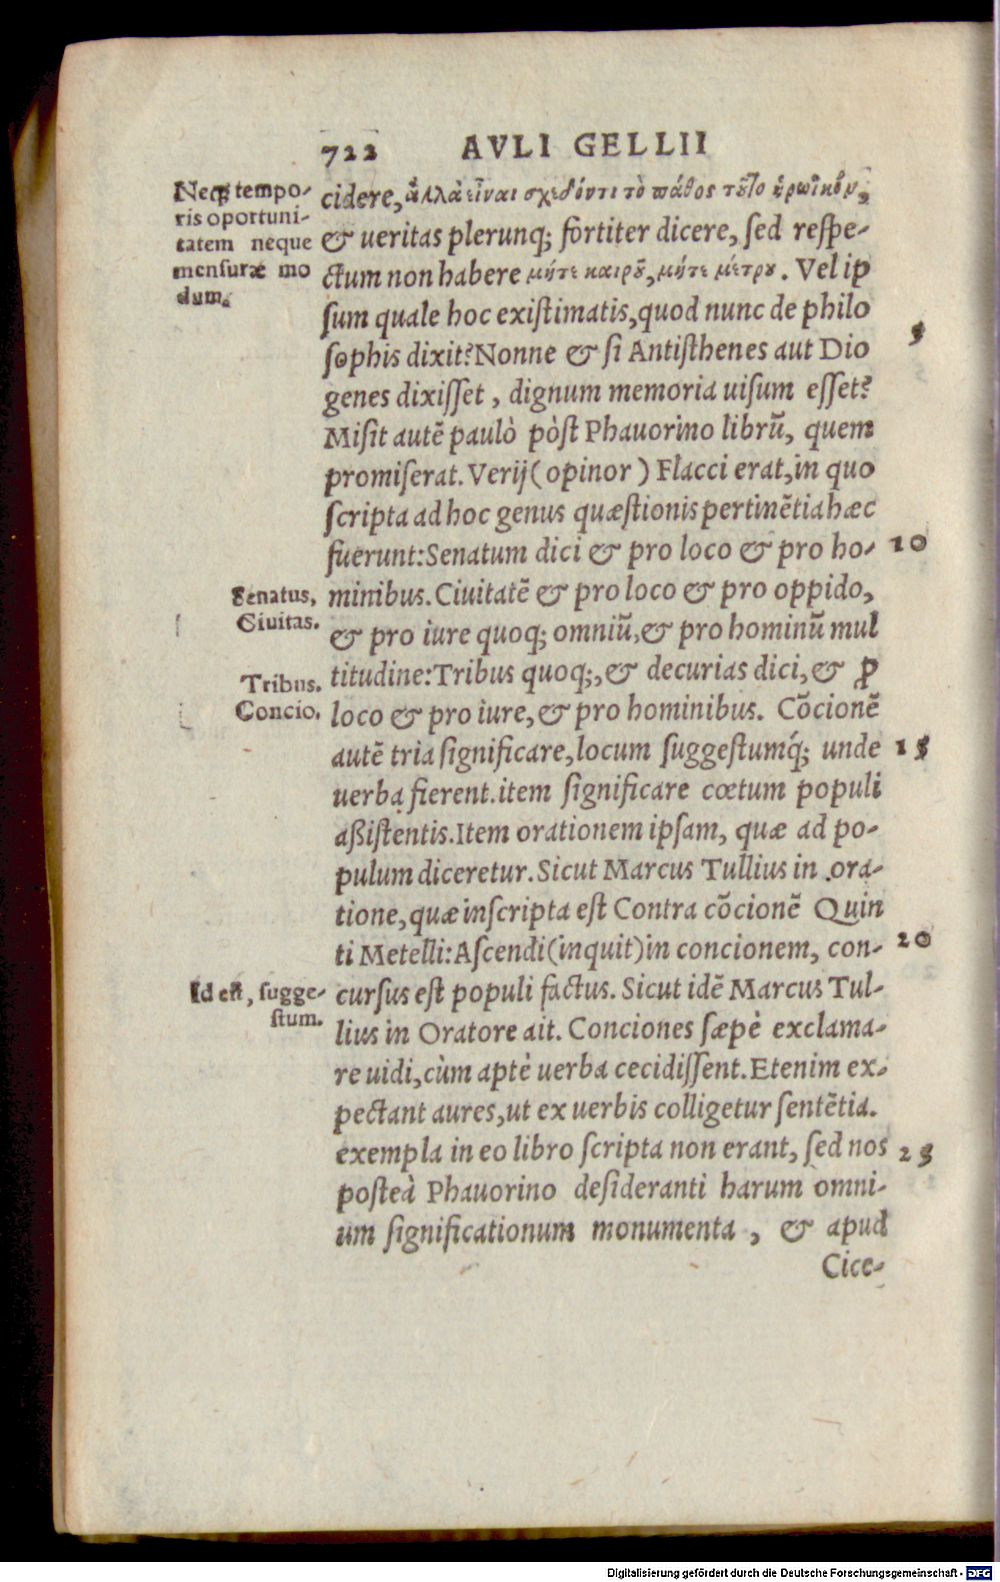 722 AVLI GELLII
Neq; tempo-
ris oportuni-
tatem neque
mensuræ mo
dum.
cidere, ἀλλὰ εἶναι σχεδόν τι τὸ πάθος τοῦτο ἡρωϊκόν,
& ueritas plerunq; fortiter dicere, sed respe-
ctum non habere μήτε καιροῦ, μήτε μέτρου. Vel ip
sum quale hoc existimatis, quod nunc de philo
sophis dixit? Nonne & si Antisthenes aut Dio
5
genes dixisset, dignum memoria uisum esset?
Misit autē paulò pòst Phauorino librū, quem
promiserat. Verij (opinor) Flacci erat, in quo
scripta ad hoc genus quæstionis pertinētia hæc
fuerunt: Senatum dici & pro loco & pro ho-
10
Senatus,
Ciuitas.
minibus. Ciuitatē & pro loco & pro oppido,
& pro iure quoq; omniū, & pro hominū mul
Tribus.
Concio.
titudine: Tribus quoq;, & decurias dici, & ꝓ
loco & pro iure, & pro hominibus. Cōcionē
autē tria significare, locum suggestumq́; unde
15
uerba fierent. item significare cœtum populi
aßistentis. Item orationem ipsam, quæ ad po-
pulum diceretur. Sicut Marcus Tullius in ora-
tione, quæ inscripta est Contra cōcionē Quin
ti Metelli: Ascendi (inquit) in concionem, con-
20
Id est, sugge-
stum.
cursus est populi factus. Sicut idē Marcus Tul-
lius in Oratore ait. Conciones sæpè exclama-
re uidi, cùm aptè uerba cecidissent. Etenim ex-
pectant aures, ut ex uerbis colligetur sentētia.
exempla in eo libro scripta non erant, sed nos
25
posteà Phauorino desideranti harum omni-
um significationum monumenta, & apud
Cice-
Digitalisierung gefördert durch die Deutsche Forschungsgemeinschaft - DFG